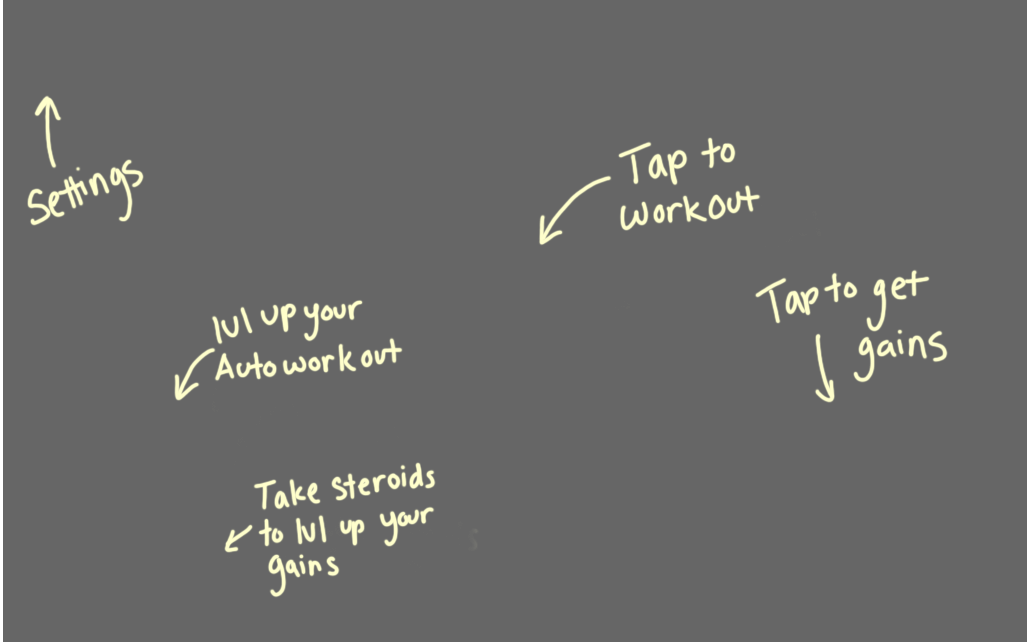 Settings
Tap to
workout
Tap to get
gains
lvl up your
Auto workout
Take steroids
to lvl up your
gains
s